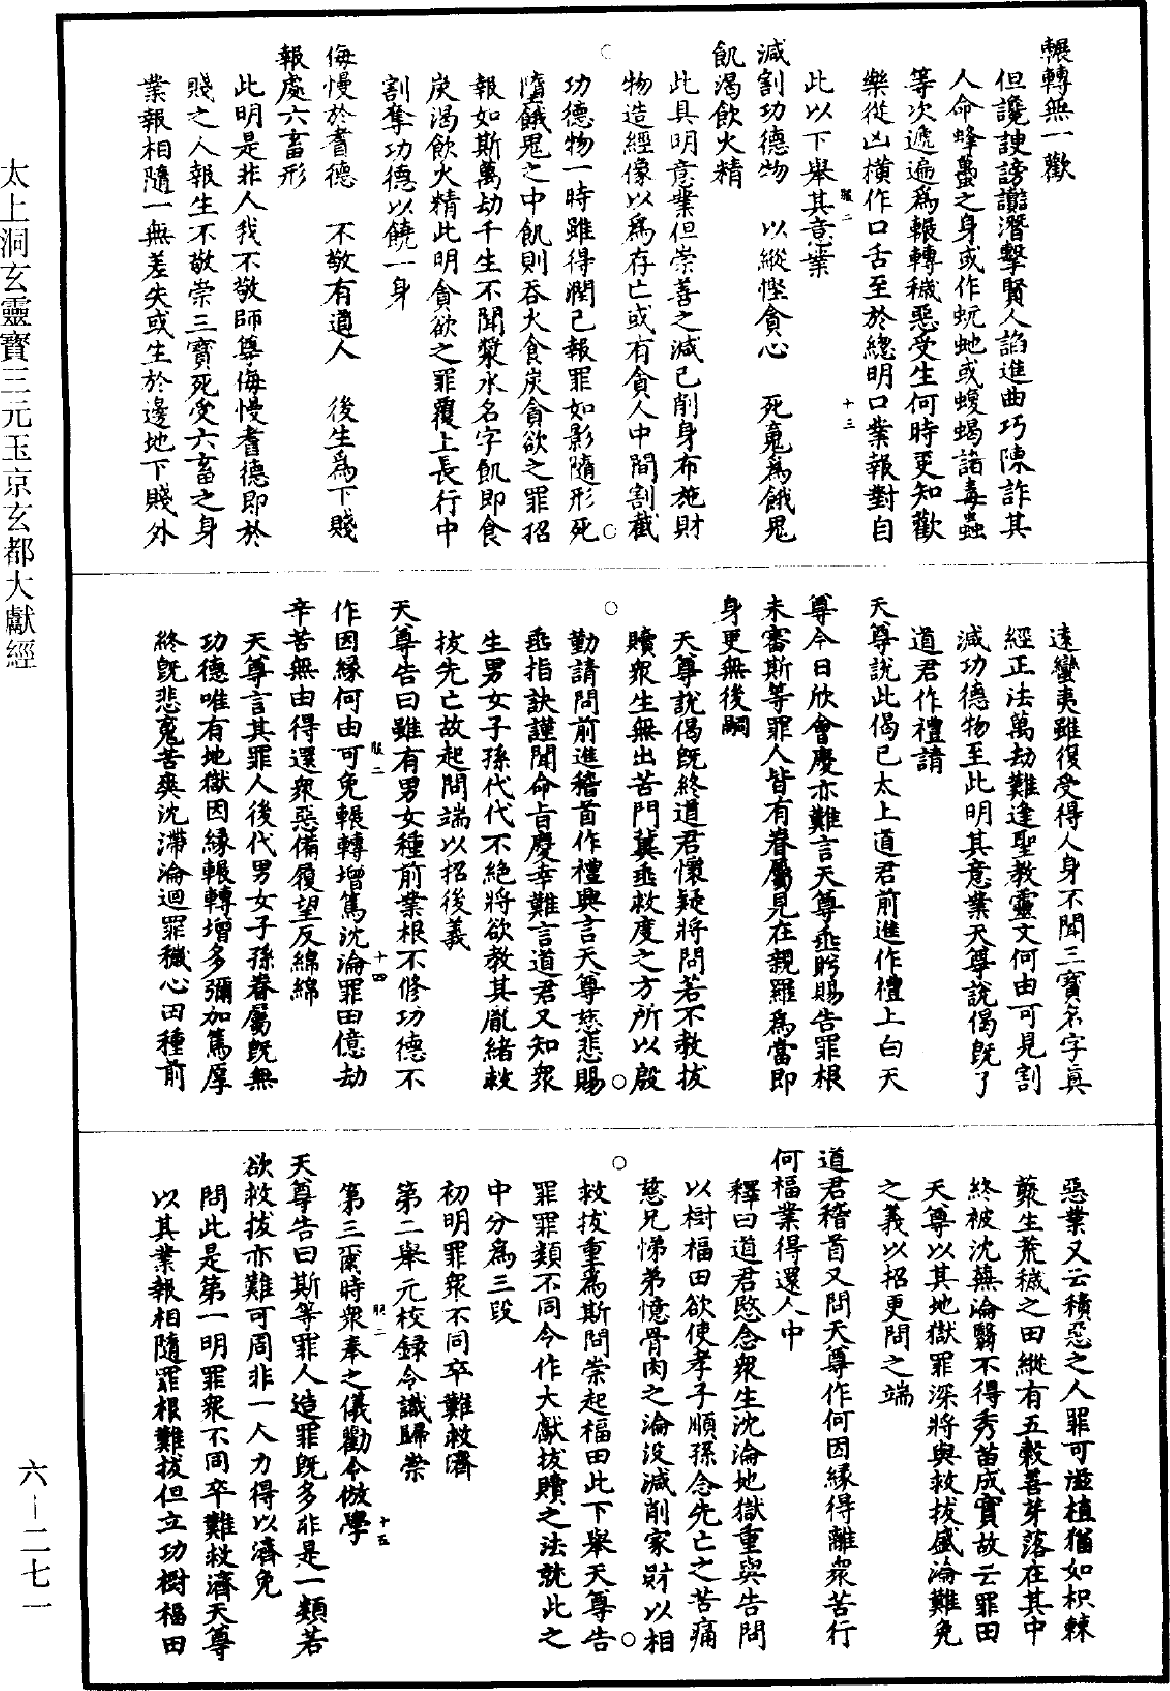 輾轉無一歡
但讒諛謗讟潛擊賢人諂進曲巧陳詐其
人命蜂蠆之身或作蚖虵或蝮蝎諸毒蟲
等次遞遍爲輾轉穢惡受生何時更知歡
樂從凶橫作口舌至於總明口業報對自
此以下舉其意業
服二
十三
減割功德物 以縱慳貪心 死魂爲餓鬼
飢渴飲火精
此具明意業但崇善之減己削身布施財
物造經像以爲存亡或有貪人中間割截
功德物一時雖得潤己報罪如影隨形死
墮餓鬼之中飢則吞火食炭貪欲之罪招
報如斯萬劫千生不聞漿水名字飢即食
炭渴飲火精此明貪欲之罪覆上長行中
割奪功德以饒一身
侮慢於耆德 不敬有道人 後生爲下賤
報處六畜形
此明是非人我不敬師尊侮慢耆德即於
賤之人報生不敬崇三寶死受六畜之身
業報相隨一無差失或生於邊地下賤外
遠蠻夷雖復受得人身不聞三寶名字真
經正法萬劫難逢聖教靈文何由可見割
減功德物至此明其意業天尊說偈既了
道君作禮請
天尊說此偈已太上道君前進作禮上白天
尊今日欣會慶亦難言天尊垂眄賜告罪根
未審斯等罪人皆有眷屬見在親羅爲當即
身更無後嗣
天尊說偈既終道君懷疑將問若不教拔
贖衆生無出苦門冀垂救度之方所以殷
勤請問前進稽首作禮興言天尊慈悲賜
垂指訣謹聞命旨慶幸難言道君又知衆
生男女子孫代代不絕將欲教其胤緒救
拔先亡故起問端以招後義
天尊告曰雖有男女種前業根不修功德不
服二
十四
作因緣何由可免輾轉增篤沈淪罪田億劫
辛苦無由得還衆惡備履望反綿綿
天尊言其罪人後代男女子孫眷屬既無
功德唯有地獄因緣輾轉增多彌加篤厚
終既悲寃苦爽沈滯淪迴罪穢心田種前
惡業又云積惡之人罪可滋植猶如枳棘
蘩生荒穢之田縱有五穀善芽落在其中
終被沈蕪淪翳不得秀苗成實故云罪田
天尊以其地獄罪深將與救拔盛淪難免
之義以招更問之端
道君稽首又問天尊作何因緣得離衆苦行
何福業得還人中
釋曰道君愍念衆生沈淪地獄重與告問
以樹福田欲使孝子順孫念先亡之苦痛
慈兄悌弟憶骨肉之淪沒減削家財以相
救拔重爲斯問崇起福田此下舉天尊告
罪罪類不同今作大獻拔贖之法就此之
中分爲三段
初明罪衆不同卒難救濟
第二舉元校錄令識歸崇
第三爾時衆奉之儀勸令倣學
服二
十五
天尊告曰斯等罪人造罪既多非是一類若
欲救拔亦難可周非一人力得以濟免
問此是第一明罪衆不同卒難救濟天尊
以其業報相隨罪根難拔但立功樹福田
太上洞玄靈寶三元玉京玄都大獻經
六—二七一